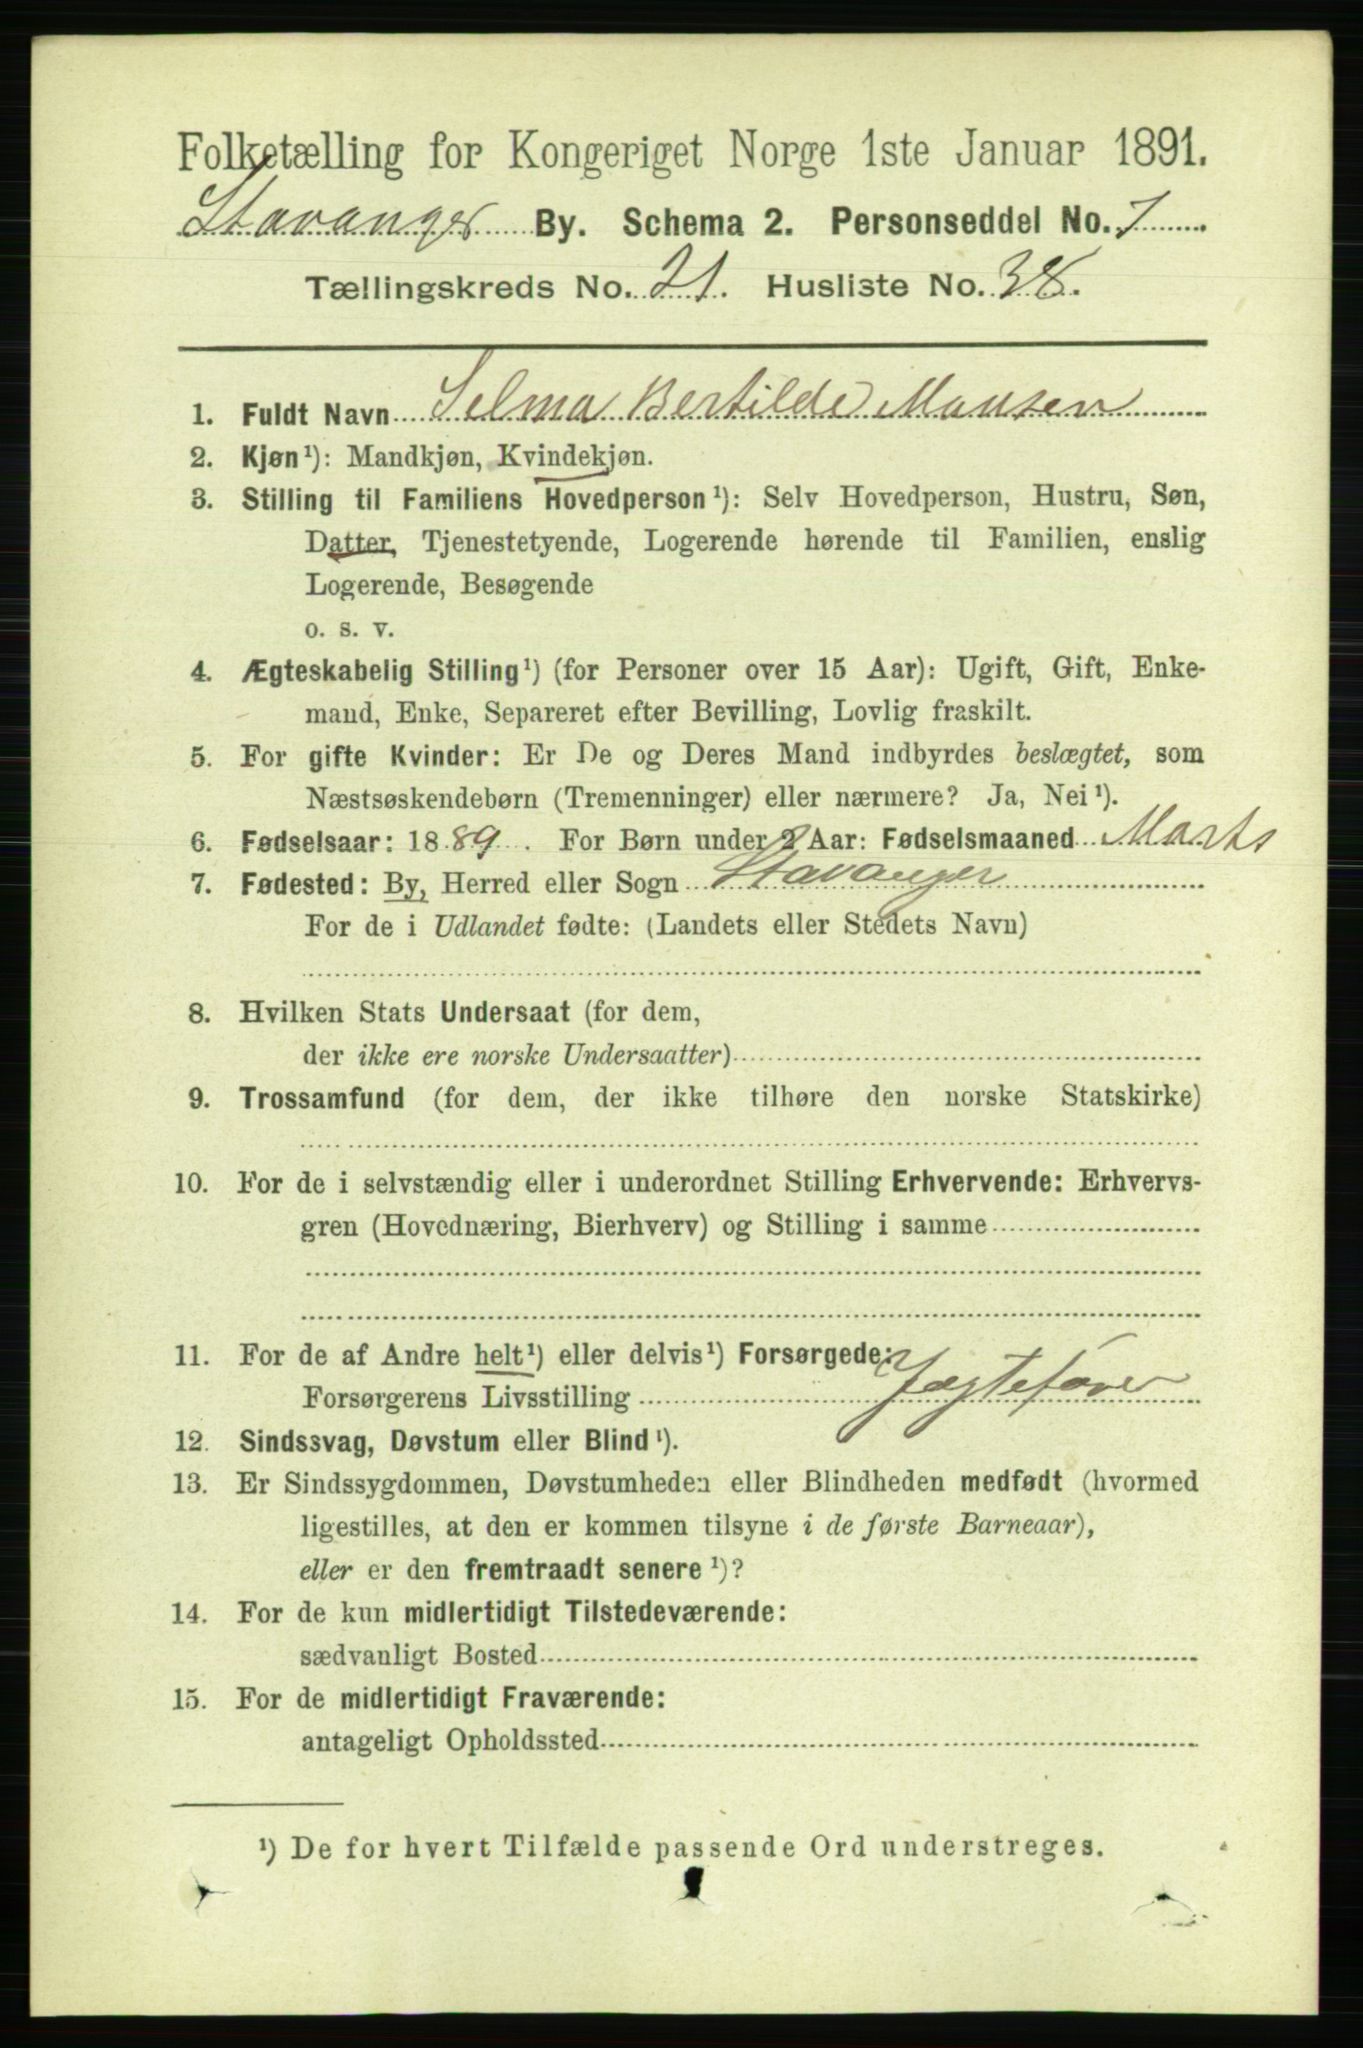 Folketælling for Kongeriget Norge 1ste Januar 1891.
Stavanger By. Schema 2. Personseddel No. 7
Tællingskreds No. 21. Husliste No. 38.
1. Fuldt Navn Selma Bertilde Monsen
2. Kjøn¹): Mandkjøn, Kvindekjøn.
3. Stilling til Familiens Hovedperson¹): Selv Hovedperson, Hustru, Søn,
Datter, Tjenestetyende, Logerende hørende til Familien, enslig
Logerende, Besøgende
o. s. v.
4. Ægteskabelig Stilling¹) (for Personer over 15 Aar): Ugift, Gift, Enke-
mand, Enke, Separeret efter Bevilling, Lovlig fraskilt.
5. For gifte Kvinder: Er De og Deres Mand indbyrdes beslægtet, som
Næstsøskendebørn (Tremenninger) eller nærmere? Ja, Nei¹).
6. Fødselsaar: 1889. For Børn under 2 Aar: Fødselsmaaned Marts
7. Fødested: By, Herred eller Sogn Stavanger
For de i Udlandet fødte: (Landets eller Stedets Navn)
8. Hvilken Stats Undersaat (for dem,
der ikke ere norske Undersaatter)
9. Trossamfund (for dem, der ikke tilhøre den norske Statskirke)
10. For de i selvstændig eller i underordnet Stilling Erhvervende: Erhvervs-
gren (Hovednæring, Bierhverv) og Stilling i samme
11. For de af Andre helt¹) eller delvis¹) Forsørgede:
Forsørgerens Livsstilling Jægtefører
12. Sindssvag, Døvstum eller Blind¹).
13. Er Sindssygdommen, Døvstumheden eller Blindheden medfødt (hvormed
ligestilles, at den er kommen tilsyne i de første Barneaar),
eller er den fremtraadt senere¹)?
14. For de kun midlertidigt Tilstedeværende:
sædvanligt Bosted
15. For de midlertidigt Fraværende:
antageligt Opholdssted
¹) De for hvert Tilfælde passende Ord understreges.